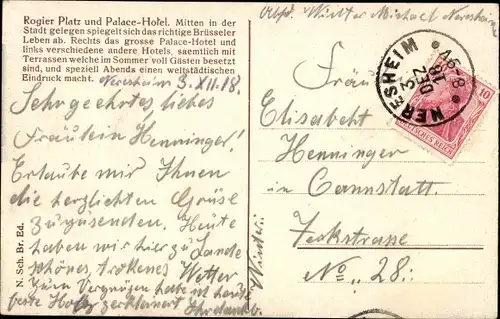 Rogier Platz und Palace-Hotel. Mitten in der
Stadt gelegen spiegelt sich das richtige Brüsseler
Leben ab. Rechts das grosse Palace-Hotel und
links verschiedene andere Hotels, saemtlich mit
Terrassen welche im Sommer voll Gästen besetzt
sind, und speziell Abends einen weltstädtischen
Eindruck macht.
Neresheim 3. XII. 18
Sehr geehrtes, liebes
Fräulein Henninger!
Erlaube mir Ihnen
die herzlichten Grüse
zuzusenden. Heute
haben wir hier zu Lande
schönes, trokenes Wetter
zum Vergnügen habe ich heute
beste
N. Sch. Br. Ed.
Winter
Absd. Winter Michael Neresheim
NERESHEIM
DEUTSCHES REICH
10
Fräu
Elisabeht
Henninger
in Cannstatt.
No „ 28: